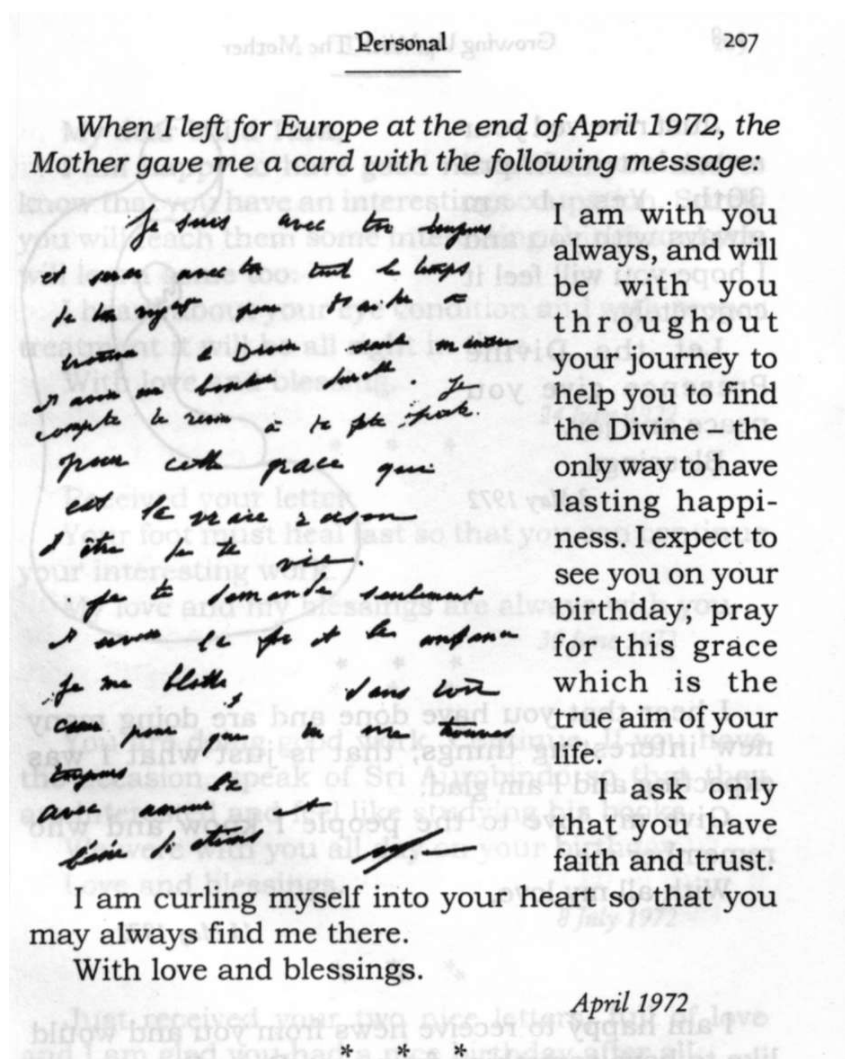 Personal 207
When I left for Europe at the end of April 1972, the
Mother gave me a card with the following message:
Je suis avec toi toujours
et serai avec toi tout le temps
de ton voyage pour t'aider à
trouver le Divin seul moyen
d'avoir un bonheur durable. Je
compte te revoir à ta fête
pour cette grace qui
est la vraie raison
d'être de ta vie.
Je te demande seulement
d'avoir la foi et la confiance
Je me blottis dans ton
cœur pour que tu me trouves
toujours là
avec amour et
bénédictions
I am with you
always, and will
be with you
throughout
your journey to
help you to find
the Divine – the
only way to have
lasting happi-
ness. I expect to
see you on your
birthday; pray
for this grace
which is the
true aim of your
life.
I ask only
that you have
faith and trust.
I am curling myself into your heart so that you
may always find me there.
With love and blessings.
April 1972
* * *